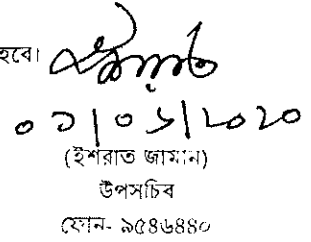 হবে।
০১|০১|২০২০
(ইশরাত জামান)
উপসচিব
ফোন- ৯৫৪৬৪৪০